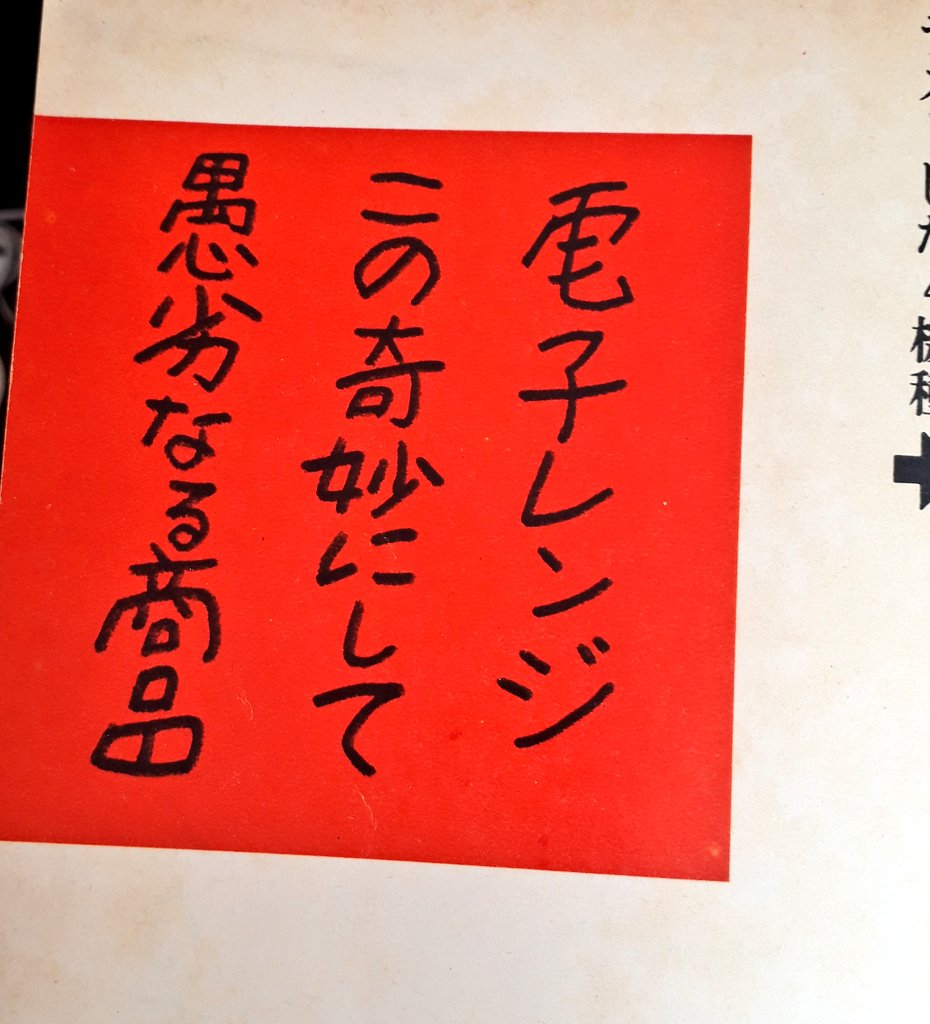 電子レンジ
この奇妙にして
愚劣なる商品
機種